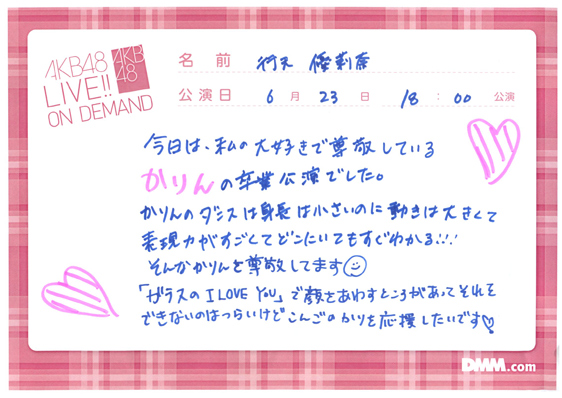 AKB48
LIVE!!
ON DEMAND
AKB
48
名 前 行天 優莉奈
公演日 6 月 23 日 18 : 00 公演
今日は、私の大好きで尊敬している
かりんの卒業公演でした。
かりんのダンスは身長は小さいのに動きは大きくて
表現力がすごくてどこにいてもすぐわかる!!!
そんなかりんを尊敬してます
「ガラスの I LOVE YOU」で顔をあわすところがあってそれを
できないのはつらいけどこんごのかりを応援したいです
DMM.com